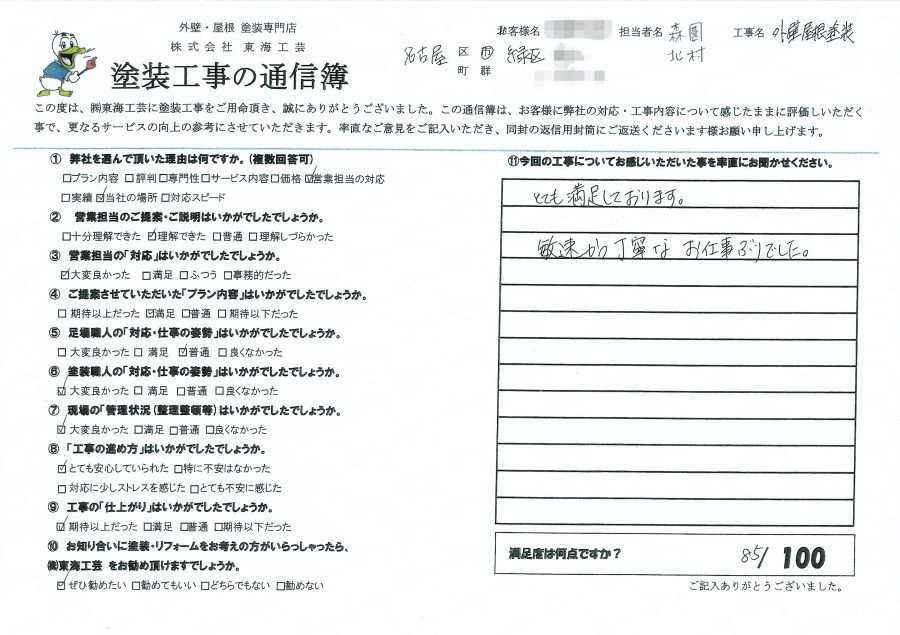 外壁・屋根 塗装専門店
株式会社 東海工芸
塗装工事の通信簿
お客様名 担当者名 森園 北村 工事名 外壁屋根塗装
名古屋 区 市 町 群 緑区
この度は、㈱東海工芸に塗装工事をご用命頂き、誠にありがとうございました。この通信簿は、お客様に弊社の対応・工事内容について感じたままに評価しいただく
事で、更なるサービスの向上の参考にさせていただきます。率直なご意見をご記入いただき、同封の返信用封筒にご返送くださいます様お願い申し上げます。
① 弊社を選んで頂いた理由は何ですか。(複数回答可)
□プラン内容 □評判□専門性□サービス内容□価格 ☑営業担当の対応
□実績 ☑当社の場所 □対応スピード
② 営業担当のご提案・ご説明はいかがでしたでしょうか。
□十分理解できた ☑理解できた □普通 □理解しづらかった
③ 営業担当の「対応」はいかがでしたでしょうか。
☑大変良かった □満足 □ふつう □事務的だった
④ ご提案させていただいた「プラン内容」はいかがでしたでしょうか。
□ 期待以上だった ☑満足 □普通 □期待以下だった
⑤ 足場職人の「対応・仕事の姿勢」はいかがでしたでしょうか。
□ 大変良かった □ 満足 ☑普通 □良くなかった
⑥ 塗装職人の「対応・仕事の姿勢」はいかがでしたでしょうか。
☑ 大変良かった □ 満足 □普通 □良くなかった
⑦ 現場の「管理状況(整理整頓等)はいかがでしたでしょうか。
☑ 大変良かった □満足 □普通 □良くなかった
⑧ 「工事の進め方」はいかがでしたでしょうか。
☑とても安心していられた □特に不安はなかった
□ 対応に少しストレスを感じた □とても不安に感じた
⑨ 工事の「仕上がり」はいかがでしたでしょうか。
☑ 期待以上だった □満足 □普通 □期待以下だった
⑩ お知り合いに塗装・リフォームをお考えの方がいらっしゃったら、
㈱東海工芸 をお勧め頂けますでしょうか。
☑ ぜひ勧めたい □勧めてもいい □どちらでもない □勧めない
⑪今回の工事についてお感じいただいた事を率直にお聞かせください。
とても満足しております。
敏速かつ丁寧な お仕事ぶりでした。
満足度は何点ですか? 85/100
ご記入ありがとうございました。